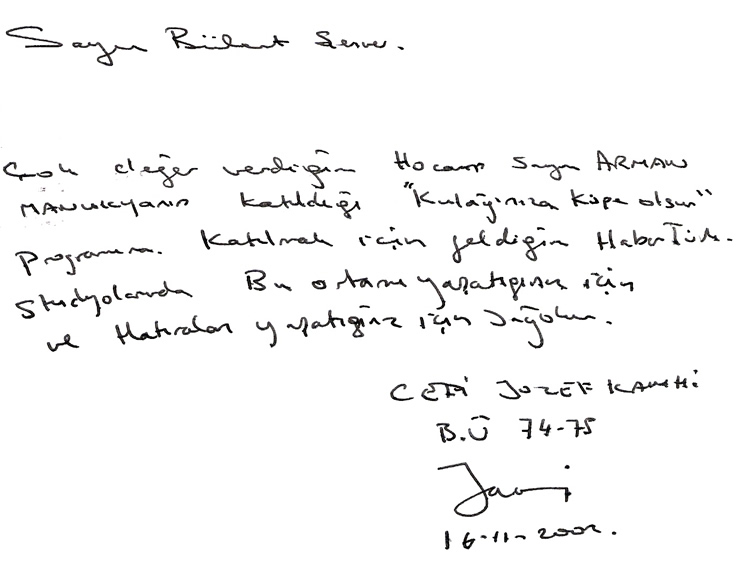 Sayın Bülent Şenver.
Çok değer verdiğim Hocam Sayın ARMAN
MANUKYANIN katıldığı "Kulağınıza Küpe olsun"
Programına. Katılmak için geldiğim HaberTürk.
Stüdyolarında Bu ortamı yarattığınız için
ve Hatıralar yaşattığınız için Sağolun.
JOZEF KAMHİ
B.Ü 74-75
16-11-2002.